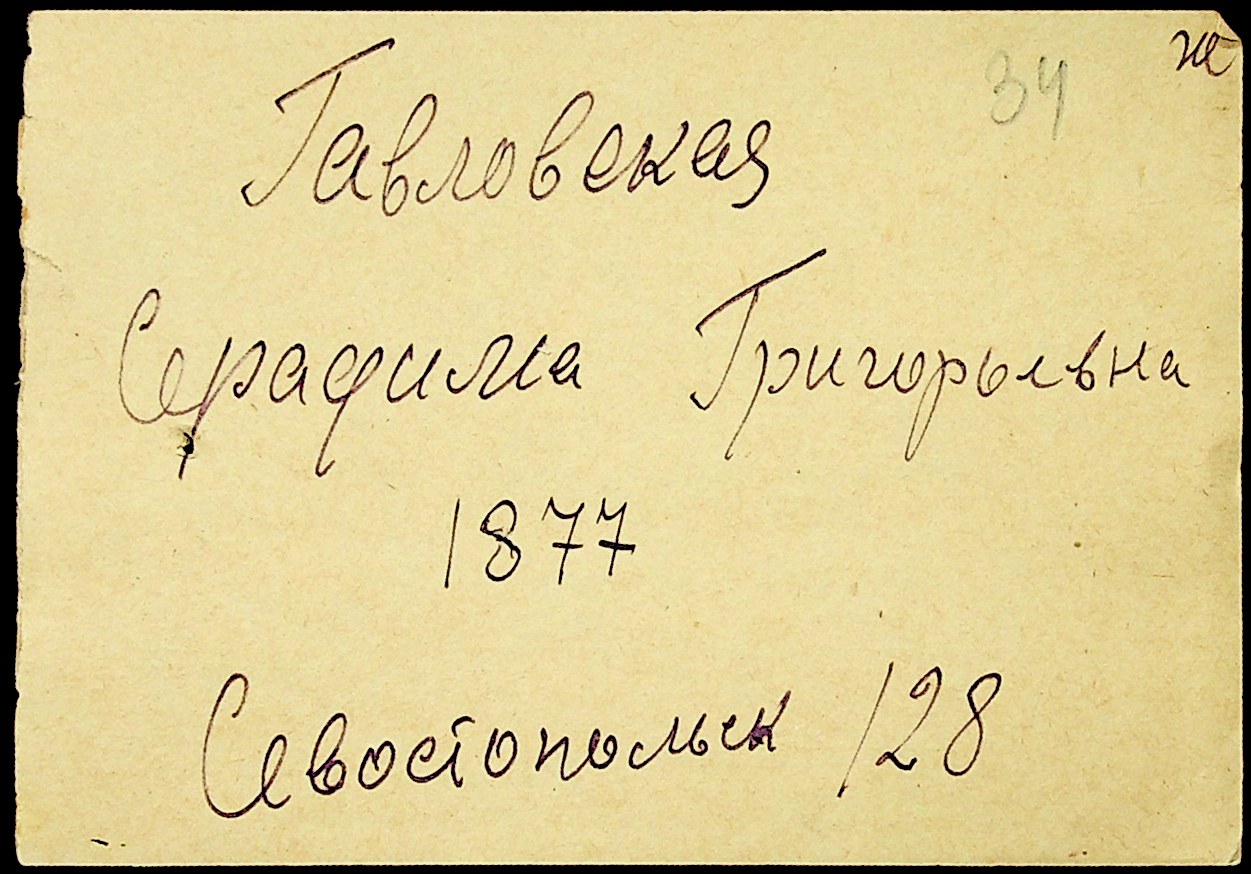 34 ж
Гавловская
Серафима Григорьевна
1877
Севостопольск 128